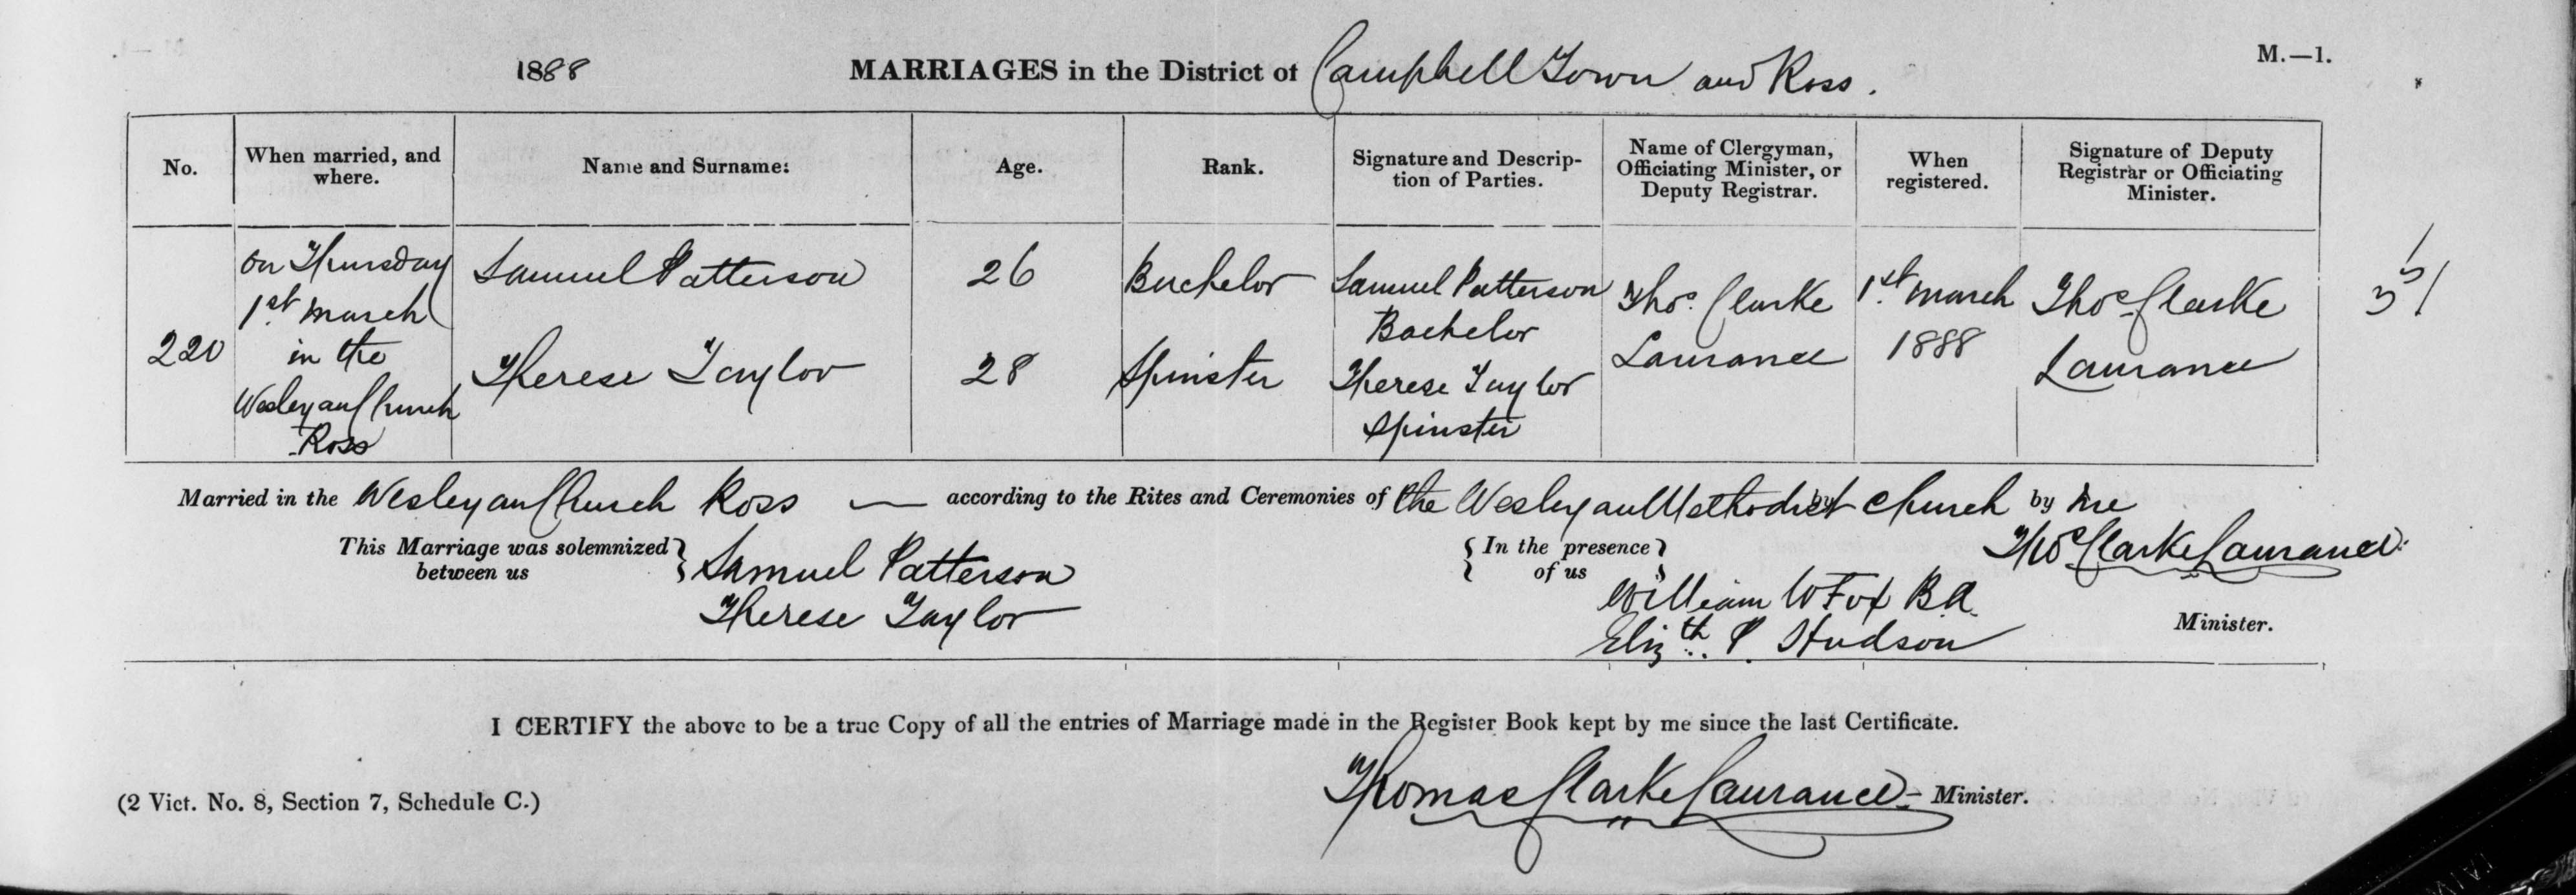 M.—1.
1888 MARRIAGES in the District of Campbell Town and Ross.
No. When married, and where. Name and Surname: Age. Rank. Signature and Descrip-tion of Parties. Name of Clergyman, Officiating Minister, or Deputy Registrar. When registered. Signature of Deputy Registrar or Officiating Minister.
220
on Thursday
1st March
in the
Wesleyan Church
Ross
Samuel Patterson
Therese Taylor
26
28
Bachelor
Spinster
Samuel Patterson
Bachelor
Therese Taylor
Spinster
Thos. Clarke
Laurance
1st. March
1888
Thos Clarke
Laurance
Married in the Wesleyan Church Ross — according to the Rites and Ceremonies of the Wesleyan Methodist Church by me
Thos Clarke Laurance.
This Marriage was solemnized between us
Samuel Patterson
Therese Taylor
In the presence of us
William W Fox B.A.
Elizth. P. Hudson
Minister.
I CERTIFY the above to be a true Copy of all the entries of Marriage made in the Register Book kept by me since the last Certificate.
Thomas Clarke Laurance - Minister.
(2 Vict. No. 8, Section 7, Schedule C.)